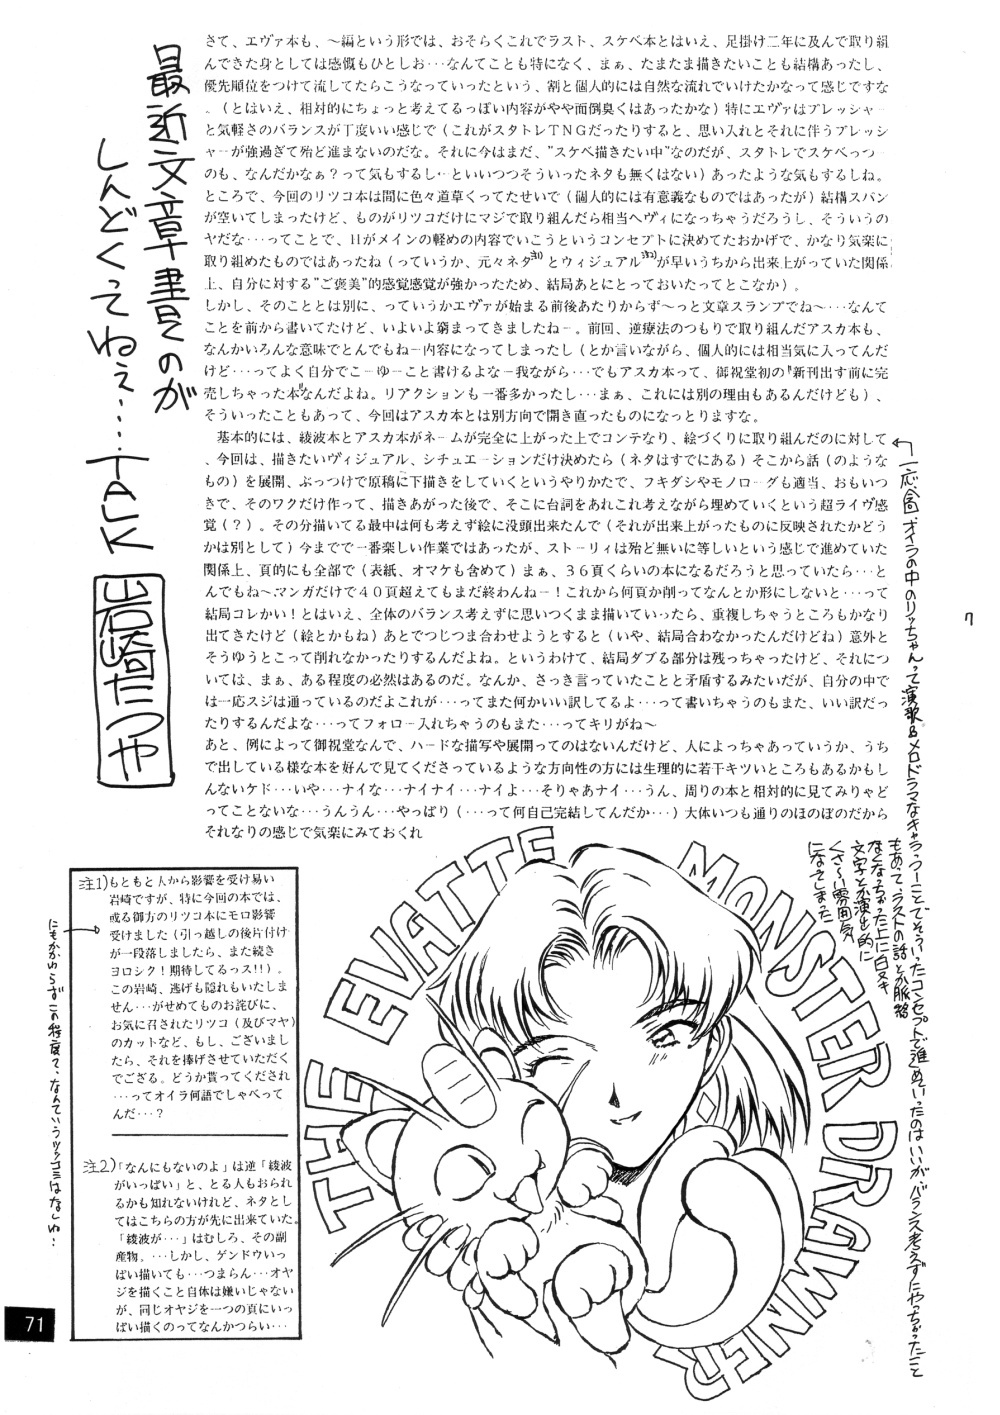 最近文章書くのが
しんどくってねぇ・・・・TALK
岩崎たつや
さて、エヴァ本も、～編という形では、おそらくこれでラスト、スケベ本とはいえ、足掛け二年に及んで取り組
んできた身としては感慨もひとしお・・・なんてことも特になく、まぁ、たまたま描きたいことも結構あったし、
優先順位をつけて流してたらこうなっていったという、割と個人的には自然な流れでいけたかなって感じですな
。（とはいえ、相対的にちょっと考えてるっぽい内容がやや面倒臭くはあったかな）特にエヴァはプレッシャー
と気軽さのバランスが丁度いい感じで（これがスタトレTNGだったりすると、思い入れとそれに伴うプレッシ
ャーが強過ぎて殆ど進まないのだな。それに今はまだ、"スケベ描きたい中"なのだが、スタトレでスケベっつー
のも、なんだかなぁ？って気もするし・・といいつつそういったネタも無くはない）あったような気もするしね。
ところで、今回のリツコ本は間に色々道草くってたせいで（個人的には有意義なものではあったが）結構スパン
が空いてしまったけど、ものがリツコだけにマジで取り組んだら相当ヘヴィになっちゃうだろうし、そういうの
ヤだな・・・ってことで、Hがメインの軽めの内容でいこうというコンセプトに決めてたおかげで、かなり気楽に
取り組めたものではあったね（っていうか、元々ネタ注1)とヴィジュアル注2)が早いうちから出来上がっていた関係
上、自分に対する"ご褒美"的感覚感覚が強かったため、結局あとにとっておいたってとこなか）。
しかし、そのこととは別に、っていうかエヴァが始まる前後あたりからず～っと文章スランプでね～・・・なんて
ことを前から書いてたけど、いよいよ窮まってきましたねー。前回、逆療法のつもりで取り組んだアスカ本も、
なんかいろんな意味でとんでもねー内容になってしまったし（とか言いながら、個人的には相当気に入ってんだ
けど・・・ってよく自分でこーゆーこと書けるよなー我ながら・・・でもアスカ本って、御祝堂初の『新刊出す前に完
売しちゃった本』なんだよね。リアクションも一番多かったし・・・まぁ、これには別の理由もあるんだけども）、
そういったこともあって、今回はアスカ本とは別方向で開き直ったものになっとりますな。
基本的には、綾波本とアスカ本がネームが完全に上がった上でコンテなり、絵づくりに取り組んだのに対して
、今回は、描きたいヴィジュアル、シチュエーションだけ決めたら（ネタはすでにある）そこから話（のような
もの）を展開、ぶっつけで原稿に下描きをしていくというやりかたで、フキダシやモノローグも適当、おもいつ
きで、そのワクだけ作って、描きあがった後で、そこに台詞をあれこれ考えながら埋めていくという超ライヴ感
覚（？）。その分描いてる最中は何も考えず絵に没頭出来たんで（それが出来上がったものに反映されたかどう
かは別として）今までで一番楽しい作業ではあったが、ストーリィは殆ど無いに等しいという感じで進めていた
関係上、頁的にも全部で（表紙、オマケも含めて）まぁ、36頁くらいの本になるだろうと思っていたら・・・と
んでもね～、マンガだけで40頁超えてもまだ終わんねー！これから何頁か削ってなんとか形にしないと・・・って
結局コレかい！とはいえ、全体のバランス考えずに思いつくまま描いていったら、重複しちゃうところもかなり
出てきたけど（絵とかもね）あとでつじつま合わせようとすると（いや、結局合わなかったんだけどね）意外と
そうゆうとこって削れなかったりするんだよね。というわけて、結局ダブる部分は残っちゃったけど、それにつ
いては、まぁ、ある程度の必然はあるのだ。なんか、さっき言っていたことと矛盾するみたいだが、自分の中で
は一応スジは通っているのだよこれが・・・ってまた何かいい訳してるよ・・・って書いちゃうのもまた、いい訳だっ
たりするんだよな・・・ってフォロー入れちゃうのもまた・・・ってキリがね～
あと、例によって御祝堂なんで、ハードな描写や展開ってのはないんだけど、人によっちゃあっていうか、うち
で出している様な本を好んで見てくださっているような方向性の方には生理的に若干キツいところもあるかもし
んないケド・・・いや・・・ナイな・・・ナイナイ・・・ナイよ・・・そりゃあナイ・・・うん、周りの本と相対的に見てみりゃど
ってことないな・・・うんうん・・・やっぱり（・・・って何自己完結してんだか・・・）大体いつも通りのほのぼのだから
それなりの感じで気楽にみておくれ
一応今回、オイラの中のリッちゃんって演歌&メロドラマなキャラ、つーことでそういったコンセプトで進めていったのはいいが、バランス考えずにやっちゃったこと
もあって、ラストの話とか脈絡
なくなっちゃった上に白ヌキ
文字とか演出的に
くさ～い雰囲気
になってしまった
注1）もともと人から影響を受け易い
岩崎ですが、特に今回の本では、
或る御方のリツコ本にモロ影響
受けました（引っ越しの後片付け
が一段落しましたら、また続き
ヨロシク！期待してるっス!!）。
この岩崎、逃げも隠れもいたしま
せん・・・がせめてものお詫びに、
お気に召されたリツコ（及びマヤ）
のカットなど、もし、ございまし
たら、それを捧げさせていただく
でござる。どうか貰ってくだされ
・・・ってオイラ何語でしゃべって
んだ・・・？
にもかかわらずこの程度で、なんていうツッコミはなしね・・
注2）「なんにもないのよ」は逆「綾波
がいっぱい」と、とる人もおられ
るかも知れないけれど、ネタとし
てはこちらの方が先に出来ていた。
「綾波が・・・」はむしろ、その副
産物、・・・しかし、ゲンドウいっ
ぱい描いても・・・つまらん・・・オヤ
ジを描くこと自体は嫌いじゃない
が、同じオヤジを一つの頁にいっ
ぱい描くのってなんかつらい・・・
THE EVATTE MONSTER DRAWNER
71
7